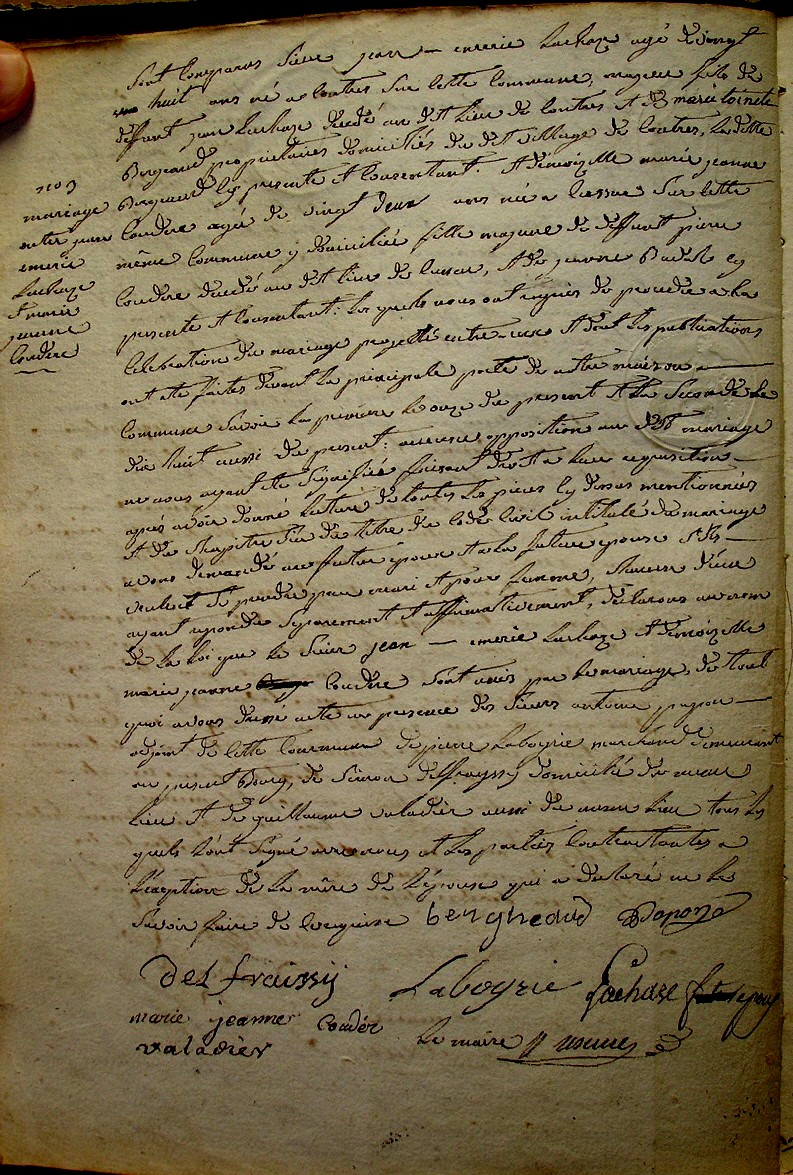 Sont Comparus Sieur jean - emerie Lachaze agé de vingt
huit ans né a Coutres sur Cette Commune, majeur fils de
deffunt jean Lachaze decedé au dit Lieu de Coutres et de marie toinete
Bergeaud propriétaires domiciliés du dit village de Coutres, La ditte
Bergeaud Cy presente et Consentant. et demoizelle marie jeanne
Coudere agée de vingt deux ans née a Lissac sur Cette
même Commune y domiciliée fille majeure de deffunt pierre
Coudere decedé au dit lieu de Lissac, et de jeanne Cy
presente et Consentant: Les quels nous ont requis de procedre a la
Celebration du mariage projetté entre eux et dont Les publications
ont eté faites devant La principale porte de notre maison
Commune Savoir La premiere Le onze du present et La Seconde Le
dix huit aussi du present: aucune opposition au dit mariage
ne nous ayant eté Signifiée faisant droit a Leur requisition
après avoir donné Lecture de toutes Les pieces Cy dessus mentionnées
et du Chapitre Six du titre du Code Civil intitulé du mariage
avons demandé au futur epoux et a La future epouse S'ils
veulent Se prendre pour mari et pour femme, Chacun d'eux
ayant repondu Separement et affirmativement, declarons au nom
de La Loi que Le Sieur jean - emerie Lachaze et demoizelle
marie jeanne Coudere Sont unis par Le mariage, de tout
quoi avons dressé acte en presence des Sieurs antoine
adjoint de Cette Commune de pierre Laboyrie marchand demeurant
au present Bourg, de Simon delfrayssy domicilié du meme
Lieu et de guillaume valadier aussi du meme Lieu tous Les
quels L'ont Signé avec nous et Les parties Contractantes a
L'exception de La mère de L'epouse qui a declaré ne Le
Savoir faire de Ce requise bergheaud
no 3
mariage
entre jean
emerie
Lachaze
et marie
jeanne
Coudere
Delfraissy Laboyrie Lachase
marie jeanne Couder Le maire
valadier